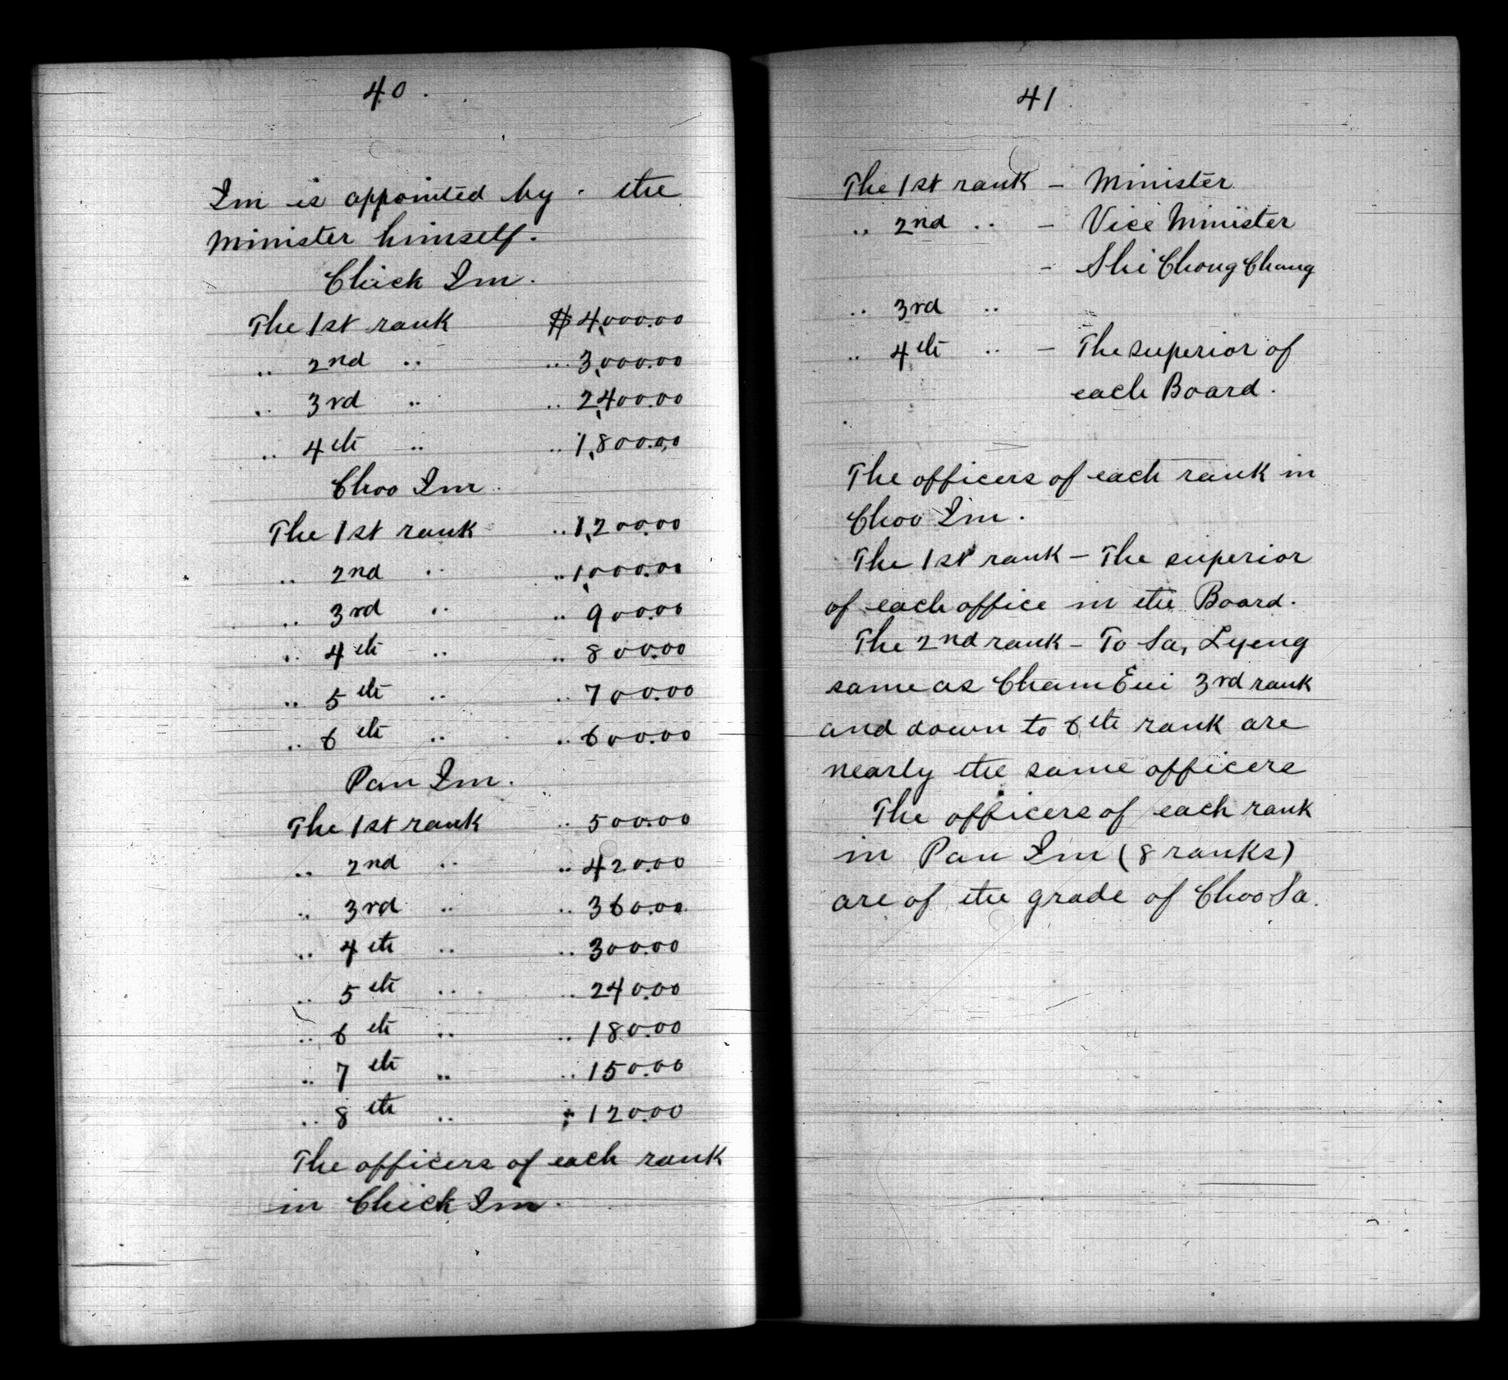 40.
Im is appointed by the
Minister himself.
Chick Im.
The 1st rank $4,000.00
.. 2nd .. .. 3,000.00
.. 3rd .. .. 2,400.00
.. 4th .. .. 1,800.00
Choo Im.
The 1st rank .. 1,200.00
.. 2nd .. .. 1,000.00
.. 3rd .. .. 900.00
.. 4th .. .. 800.00
.. 5th .. .. 700.00
.. 6th .. .. 600.00
Pan Im.
The 1st rank .. 500.00
.. 2nd .. .. 420.00
.. 3rd .. .. 360.00
.. 4th .. .. 300.00
.. 5th .. .. 240.00
.. 6th .. .. 180.00
.. 7th .. .. 150.00
.. 8th .. .. 120.00
The officers of each rank
in Chick Im.
41
The 1st rank – Minister
.. 2nd .. – Vice Minister
– Shi Chong Chang
.. 3rd ..
.. 4th .. – The superior of
each Board.
The officers of each rank in
Choo Im.
The 1st rank – The superior
of each office in the Board.
The 2nd rank – To Sa, Lyeng
same as Cham Eui 3rd rank
and down to 6th rank are
nearly the same officers
The officers of each rank
in Pan Im (8 ranks)
are of the grade of Choo Sa.